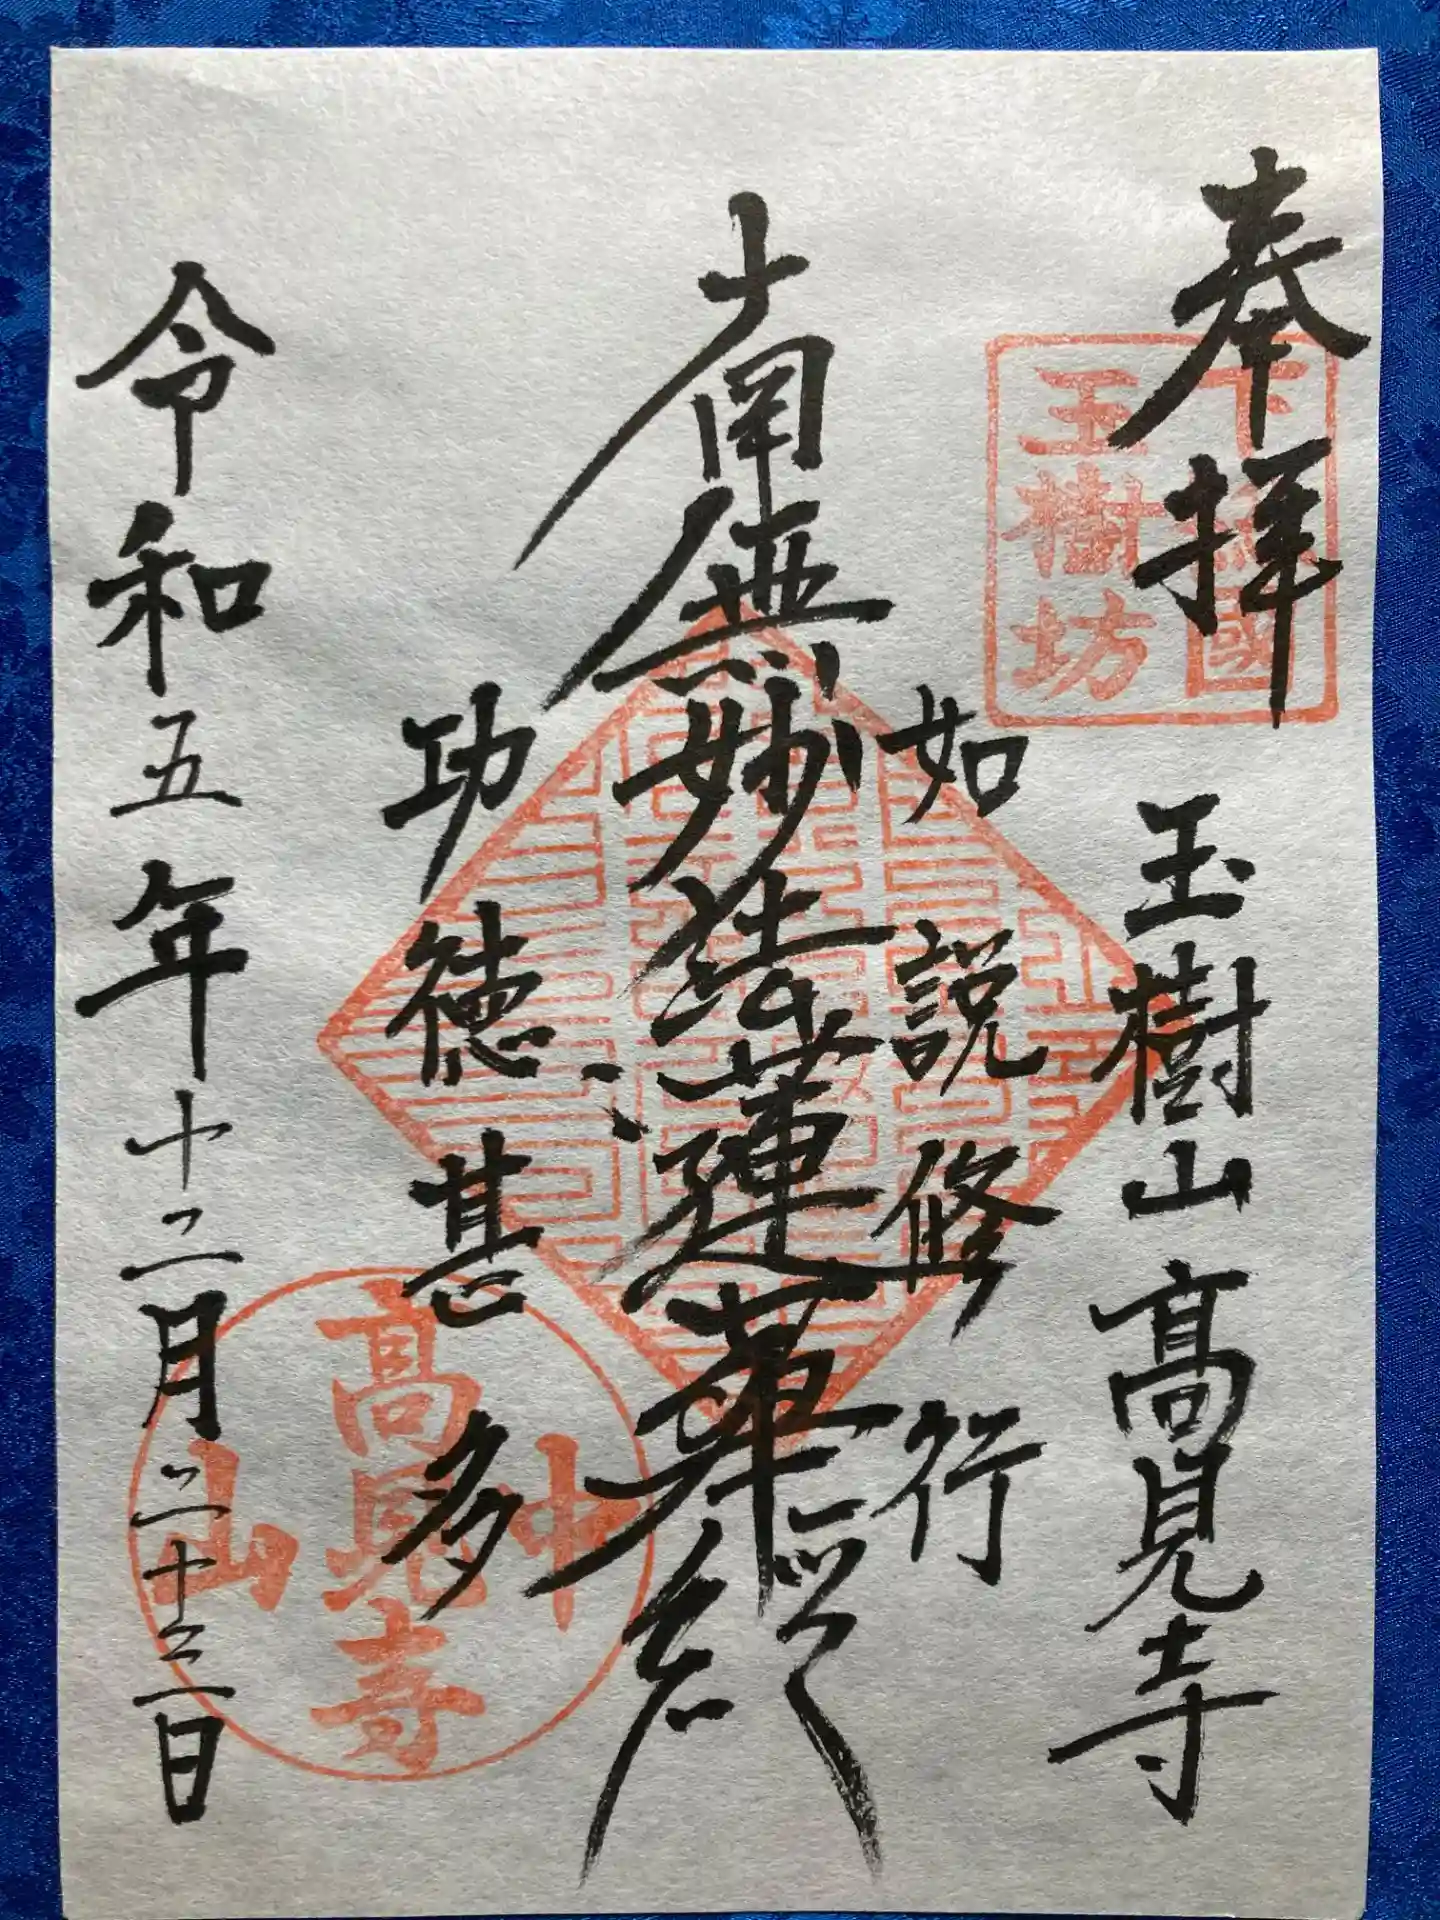 奉拝
玉樹山 髙見寺
玉樹坊
如説修行
南無妙法蓮華經
功徳甚多
令和五年十二月二十三日
中山
高見寺